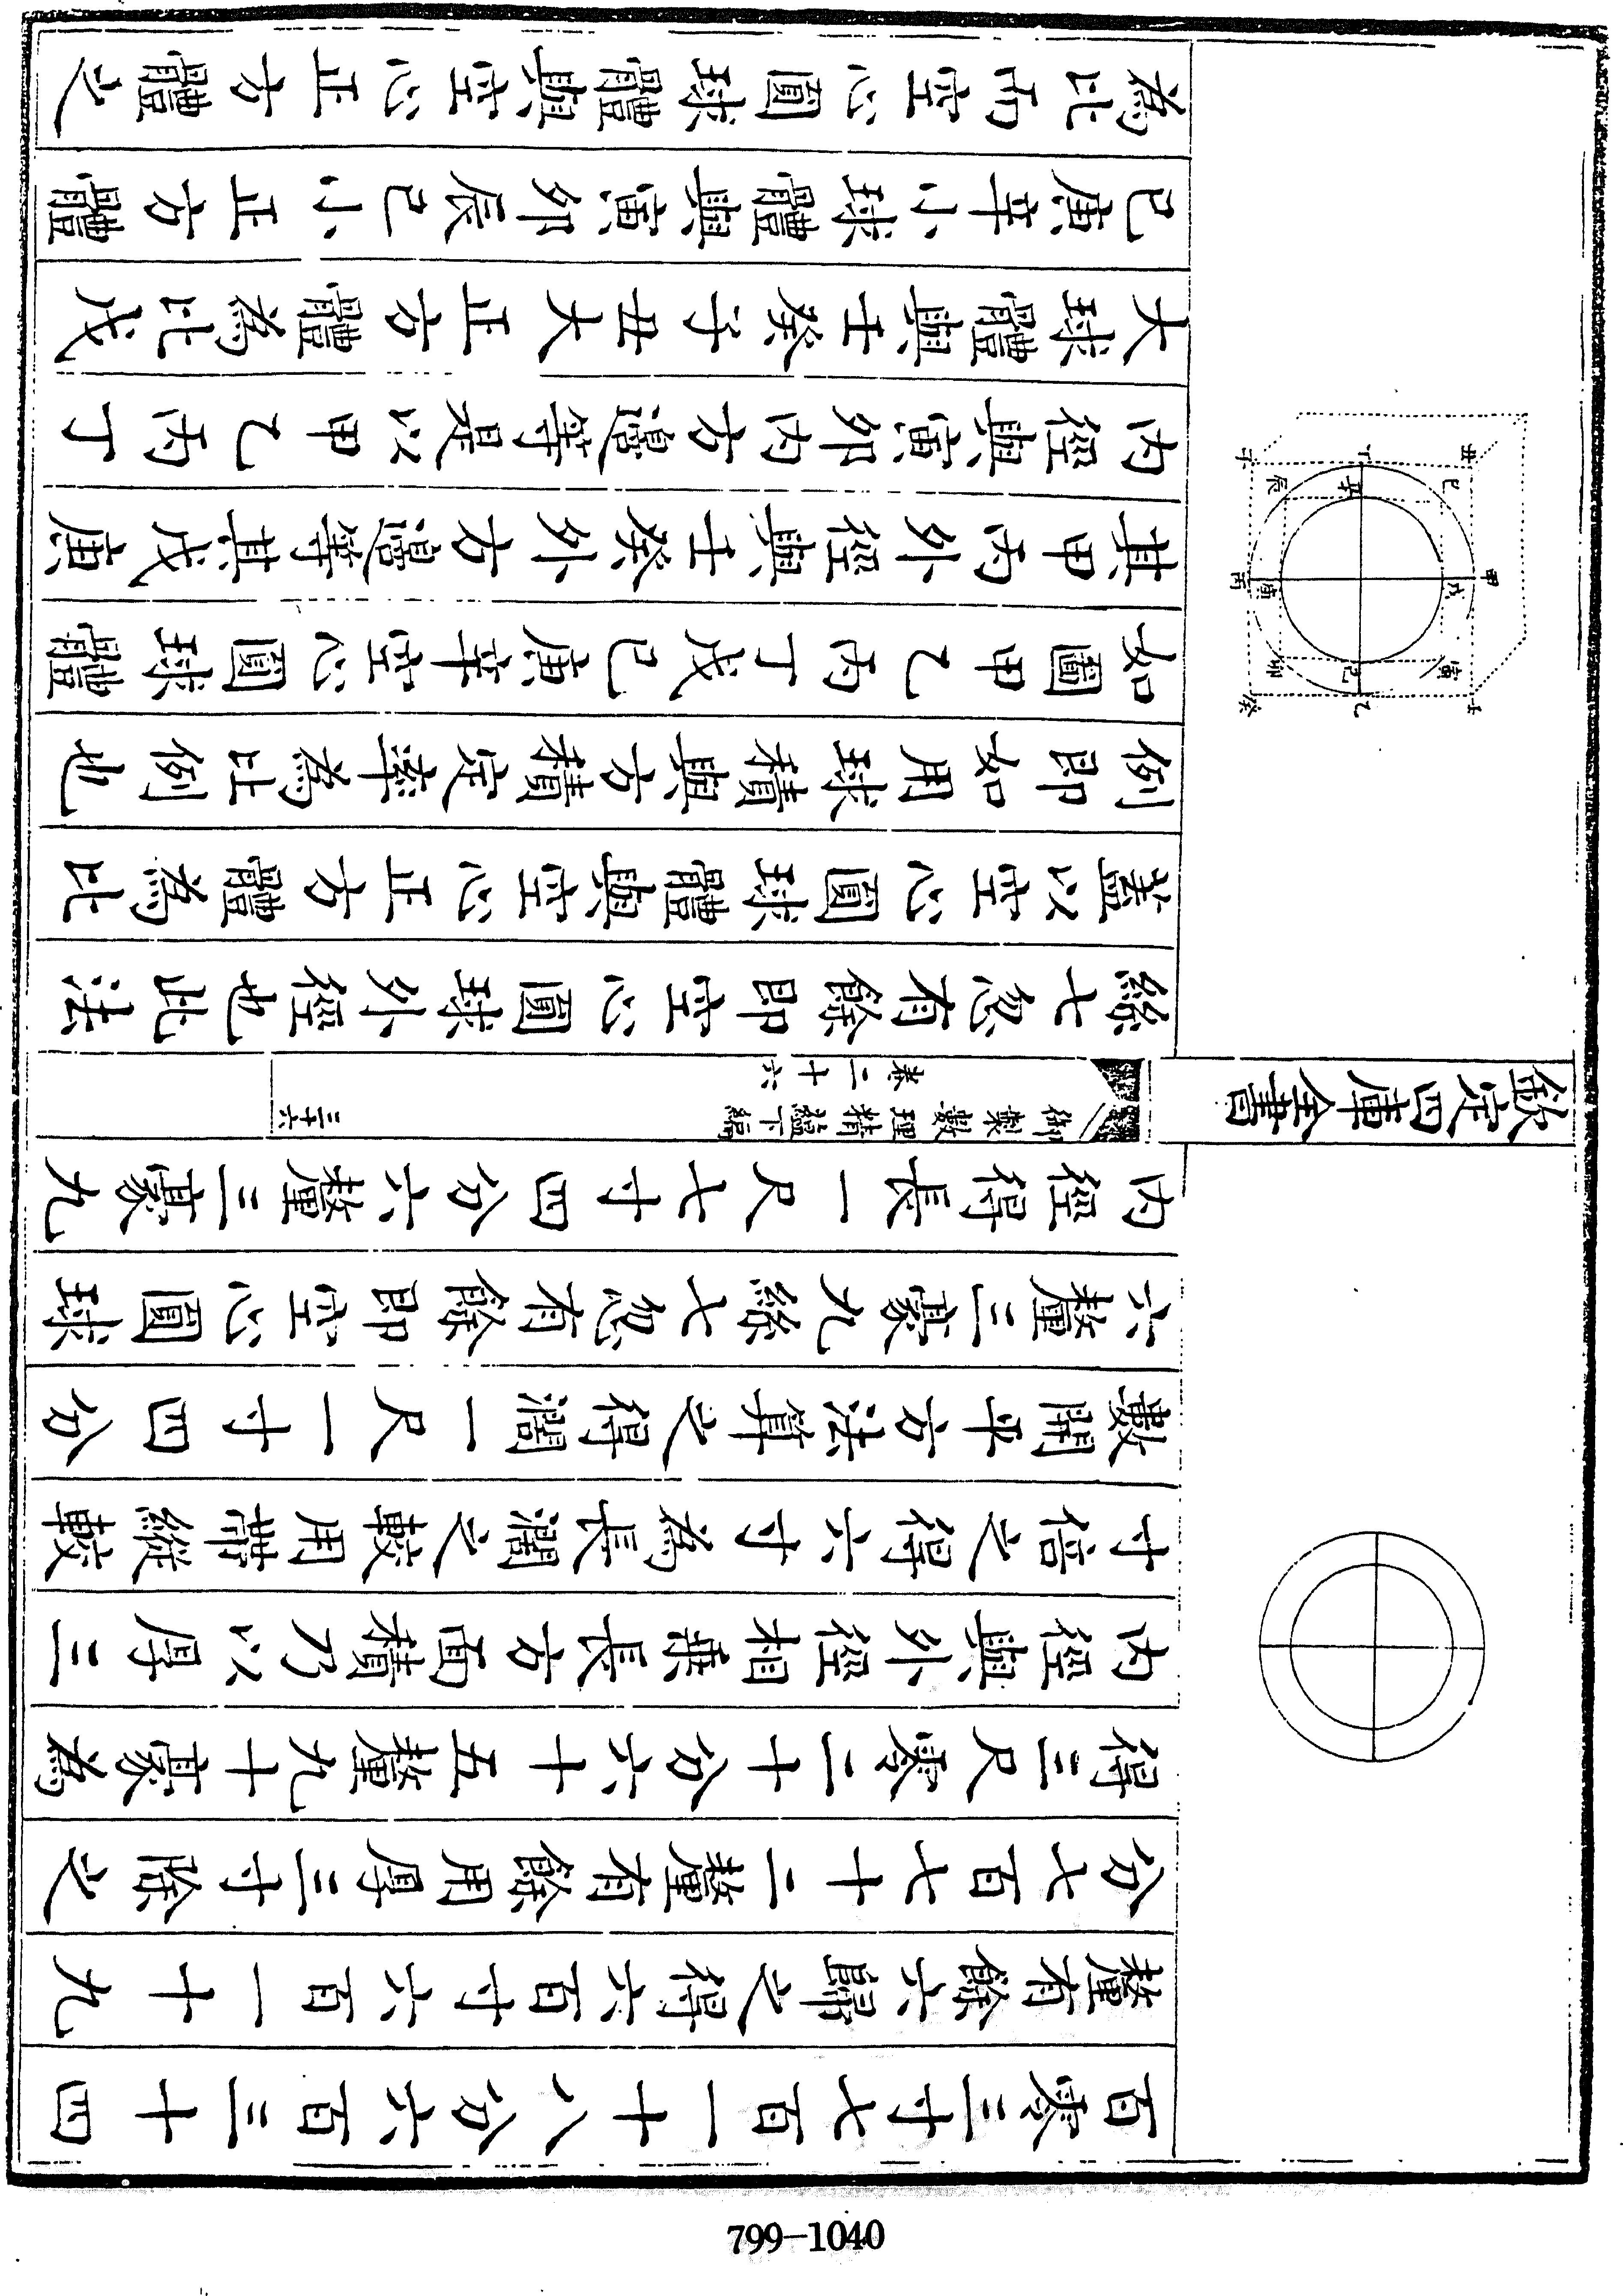 百零三寸七百一十八分六百三十四
釐有餘六歸之得六百寸六百一十九
分七百七十二釐有餘用厚三寸除之
得三尺零二十分六十五釐九十豪為
內徑與外徑相乘長方面積乃以厚三
寸倍之得六寸為長濶之較用帶縱較
數開平方法算之得濶一尺一寸四分
六釐三豪九絲七忽有餘即空心圓球
內徑得長一尺七寸四分六釐三豪九
欽定四庫全書
御製數理精藴下編
卷二十六
三十六
絲七忽有餘即空心圓球外徑也此法
蓋以空心圓球體與空心正方體為比
例即如用球積與方積定率為比例也
丑 甲 壬
巳 戊 寅
丁 辛 己 乙
辰 庚 卯
子 丙 癸
如圖甲乙丙丁戊己庚辛空心圓球體
其甲丙外徑與壬癸外方邊等其戊庚
內徑與寅卯內方邊等是以甲乙丙丁
大球體與壬癸子丑大正方體為比戊
己庚辛小球體與寅卯辰巳小正方體
為比而空心圓球體與空心正方體之
799-1040